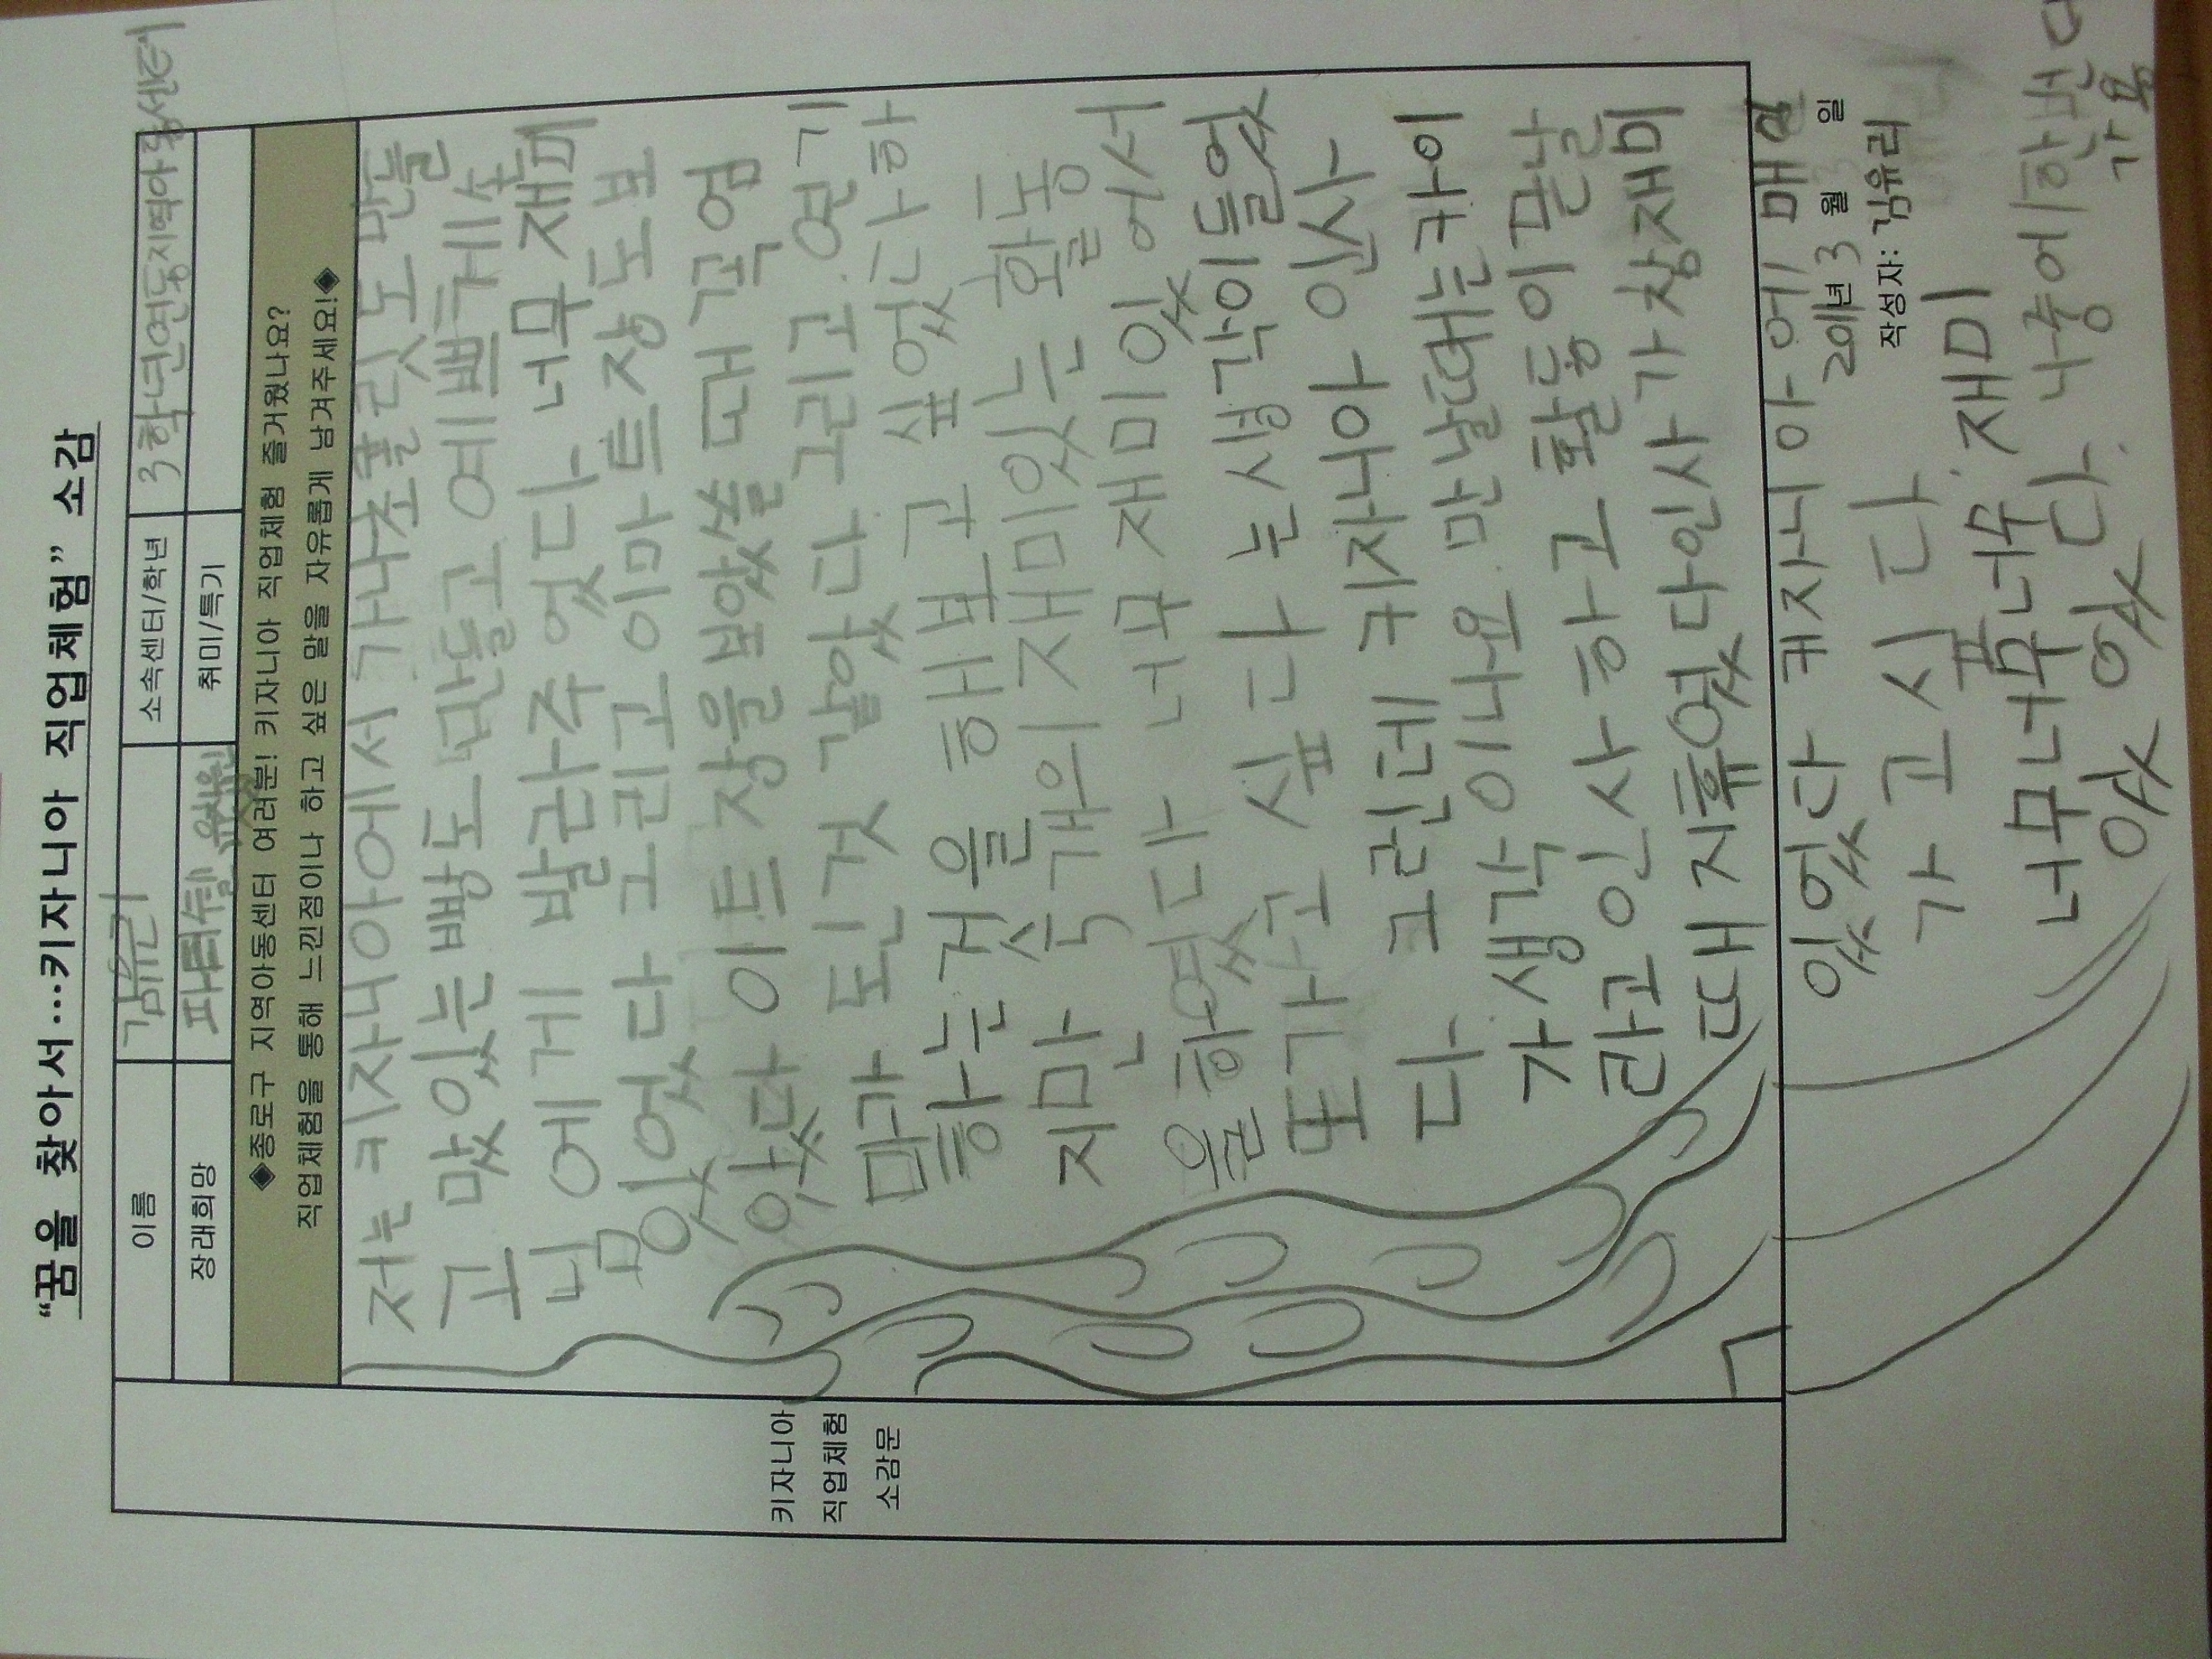 “꿈을 찾아서…키자니아 직업체험” 소감
이름 김유리 소속센터/학년 3학년연동지역아동센터
장래희망 파티쉘 취미/특기
◆종로구 지역아동센터 여러분! 키자니아 직업체험 즐거웠나요?
직업체험을 통해 느낀점이나 하고 싶은 말을 자유롭게 남겨주세요!◆
키자니아
직업체험
소감문
저는 키자니아에서 가나초콜릿도 만들
고 맜있는빵도 만들고 예쁘게 손
님에게 발라주었다. 너무 재미
있었다 그리고 이마트장도 보
았다 이트장을보았쓸 때 꼭 엄
마가 된것 같았다 그리고.연기
하는것을 해보고 싶었다 하
지만 속개의재미있는 활동
을하였다 너무 재미있어서
또가고 싶다는생각이들었
다. 그런데 키자니아 인사
가생각이나요.만날때는카이
라고인사하고활동이끝날
때지휴였다인사가창재미
있었다 캐자니아에 매일
가고시다.
너무너무너무 재미
있있다. 나중에한번더
가요
2011년 3월 일
작성자: 김유리